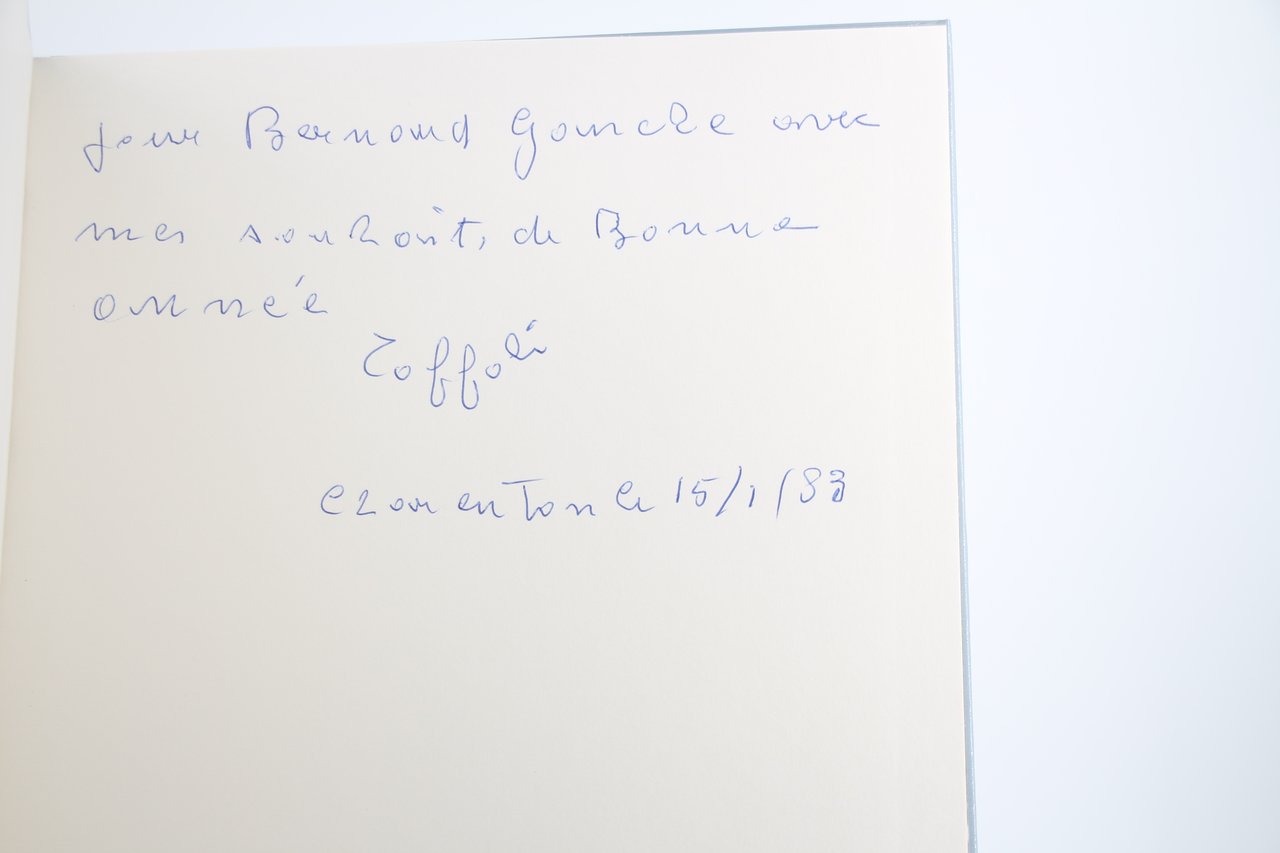 pour Bernard Gouache avec
mes souhaits de Bonne
année
Toffoli
Charenton le 15/1/83